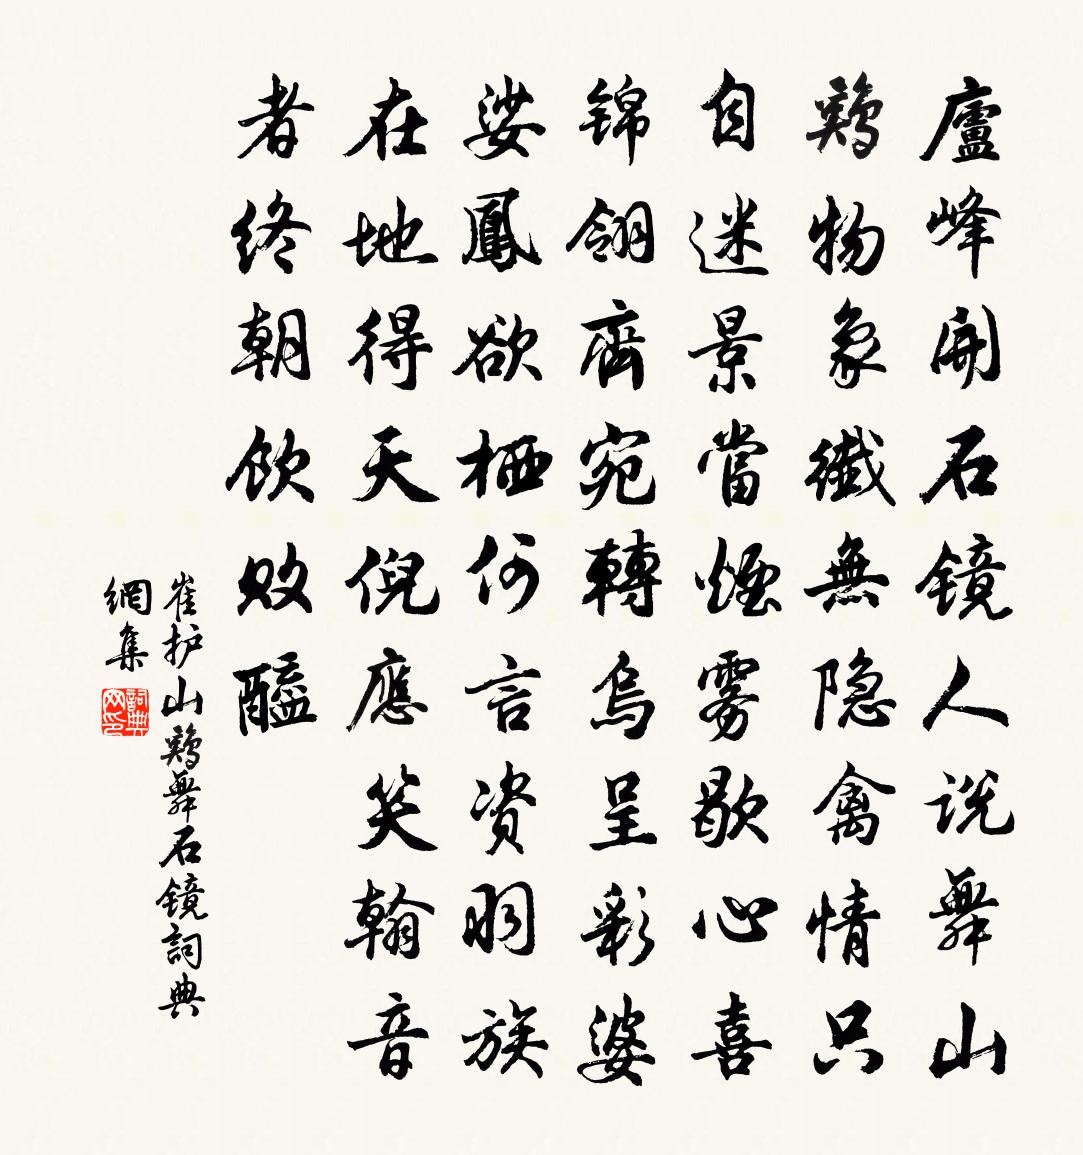 廬峰開石镜人说舞山
鷄物象纖無隐禽情只
自迷景當煙雾歇心喜
锦翎齊宛轉烏呈彩婆
娑鳳欲栖何言资羽族
在地得天倪應笑翰音
者终朝飲败醯
崔护山鷄舞石镜詞典
網集
詞典网印